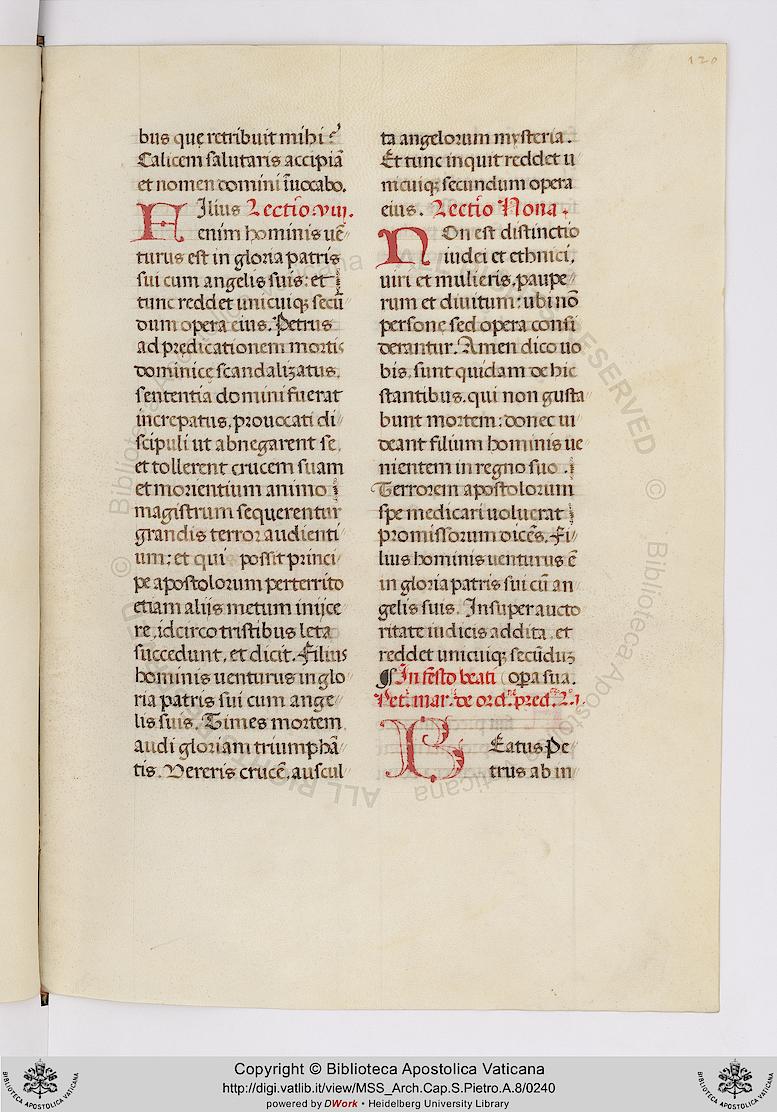 120
bus quę retribuit mihi?
Calicem salutaris accipiã
et nomen domini ĩuocabo.
Ilius Lectĩo .viij.
F enim hominis uẽ
turus est in gloria patris
sui cum angelis suis: et
tunc reddet unicuiqꝫ secũ
dum opera eius. Petrus
ad prędicationem mortis
dominicę scandalizatus,
sententia domini fuerat
increpatus, prouocati di
scipuli ut abnegarent se,
et tollerent crucem suam
et morientium animo
magistrum sequerentur
grandis terror audienti
um: et qui possit princi
pe apostolorum perterrito
etiam alijs metum inijce
re, idcirco tristibus leta
succedunt, et dicit. Filius
hominis uenturus in glo
ria patris sui cum ange
lis suis. Times mortem,
audi gloriam triumphã
tis. Uereris crucẽ, auscul
ta angelorum mysteria.
Et tunc inquit reddet u
nicuiqꝫ secundum opera
eius. Lectĩo Nona.
NOn est distinctio
iudei et ethnici,
uiri et mulieris, paupe
rum et diuitum: ubi nõ
persone sed opera consi
derantur. Amen dico uo
bis, sunt quidam de hic
stantibus, qui non gusta
bunt mortem: donec ui
deant filium hominis ue
nientem in regno suo.
Terrorem apostolorum
spe medicari uoluerat
promissorum dicẽs. Fi
lius hominis uenturus ẽ
in gloria patris sui cũ an
gelis suis. Insuper aucto
ritate iudicis addita, et
reddet unicuiqꝫ secũduꝫ
¶ In festo beati (oꝑa sua.
Pet. mar. de ord. pred. L. j.
BEatus Pe
trus ab in
Copyright © Biblioteca Apostolica Vaticana
http://digi.vatlib.it/view/MSS_Arch.Cap.S.Pietro.A.8/0240
powered by DWork • Heidelberg University Library
BIBLIOTECA APOSTOLICA VATICANA
BIBLIOTECA APOSTOLICA VATICANA